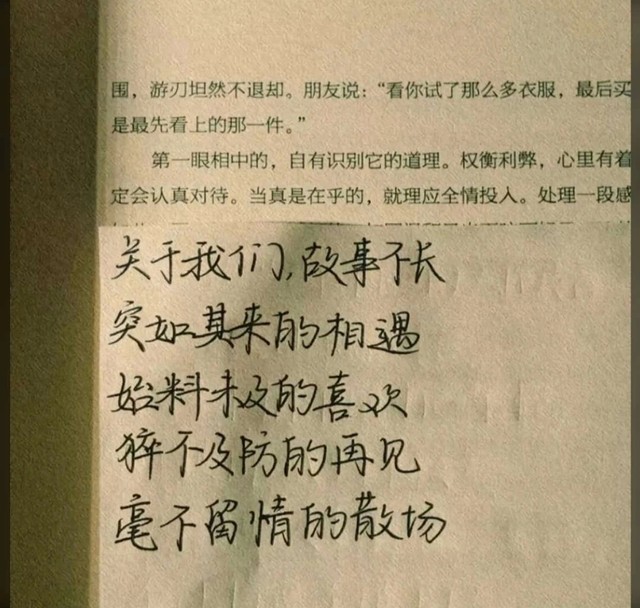 围，游刃坦然不退却。朋友说：“看你试了那么多衣服，最后买
是最先看上的那一件。”
第一眼相中的，自有识别它的道理。权衡利弊，心里有着
定会认真对待。当真是在乎的，就理应全情投入。处理一段感
关于我们,故事不长
突如其来的相遇
始料未及的喜欢
猝不及防的再见
毫不留情的散场